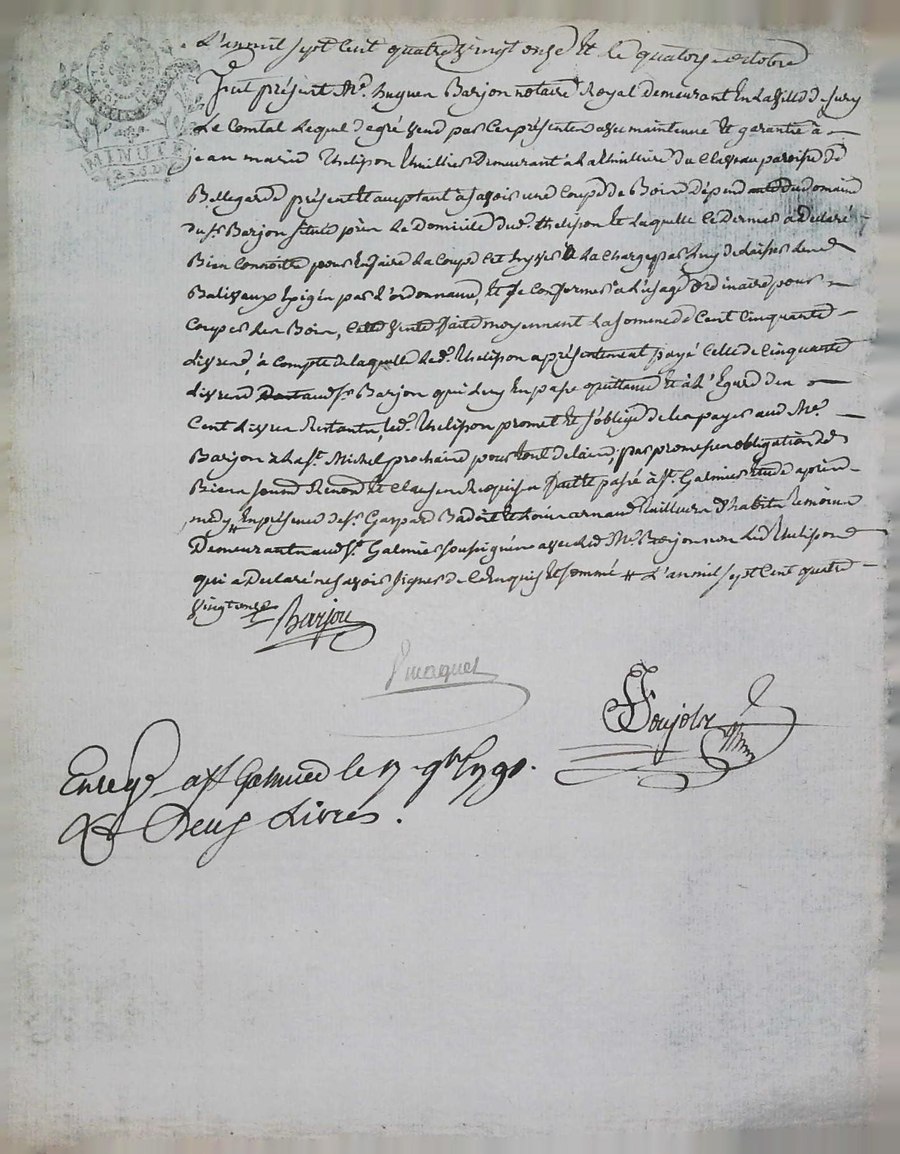 L'an mil sept cent quatre vingt onze et le quatorze octobre
MINUTE
fut présent Me. hugues Barjon notaire Royal demeurant En la ville de sury
Le Comtal Lequel de gré vend par Ces présentes avec maintenue et garantie à
jean marie thelipon demeurant à la du paroisse de
Bellegarde présent et aceptant à savoir une Coupe de Bois dépendante du domaine
du sr. Barjon situé près Le Domicile dud. thelipon et Laquelle Ce dernier a déclaré
Bien Connoitre pour En faire La Coupe à La Charge par Luy de Laisser Les
Balivaux Exigés par L'ordonnance, et se Conformer à L'usage ordinaire pour
Coupes des Bois, Cette vente faite moyennant La somme de Cent Cinquante
Livres, à Compte de laquelle Led. thelipon a présentement payé Celle de Cinquante
Livres aud. sr. Barjon qui Luy En passe quittance et à L'Egard des
Cent Livres Restantes, Led. thelipon promet et s'oblige de Les payer aud. Me.
Barjon à La st. Michel prochaine pour tout délais, par promesse obligation de
Biens et Clauses Requises fait et passé à st. Galmier Etude après
midy En présence de sr. Gaspard Badoit et Louis arnaud habitants
Demeurants aud. st. Galmier soussignés avec led. Me. Barjon non Led. thelipon
qui a déclaré ne savoir signer de Ce Enquis et sommé # L'an mil sept Cent quatre
vingt onze Barjon
Enregé. a st Galmier le 17 9bre 1791.
Deux Livres.